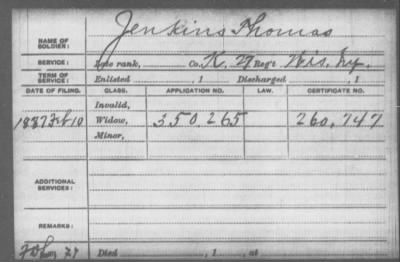 NAME OF SOLDIER: Jenkins Thomas
SERVICE: Late rank, Co. K, 27 Reg't Wis. Inf.
TERM OF SERVICE: Enlisted , 1 Discharged , 1
DATE OF FILING. CLASS. APPLICATION NO. LAW. CERTIFICATE NO.
Invalid,
1887 Feb 10 Widow, 350.265 260,747
Minor,
ADDITIONAL SERVICES:
REMARKS:
27 Died , 1 , at